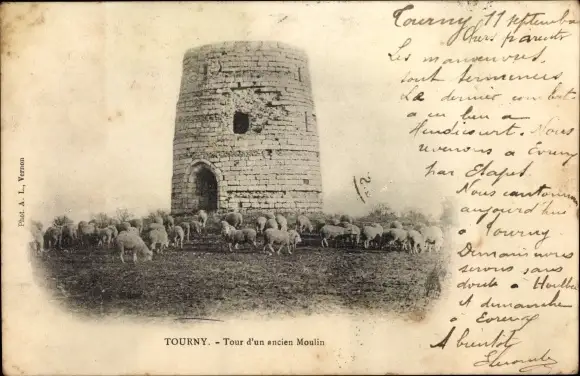 Tourny 11 septembre
chers parents
Les manœuvres
sont terminées
La dernier combat
a eu lieu a
Hindicourt. Nous
revenons a Evreux
par Etapes.
Nous cantonnons
aujourd'hui
a Tourny.
Demain nous
serons sans
doute a
A dimanche
a Evreux
A bientôt
Phot. A. L., Vernon
TOURNY. - Tour d'un ancien Moulin